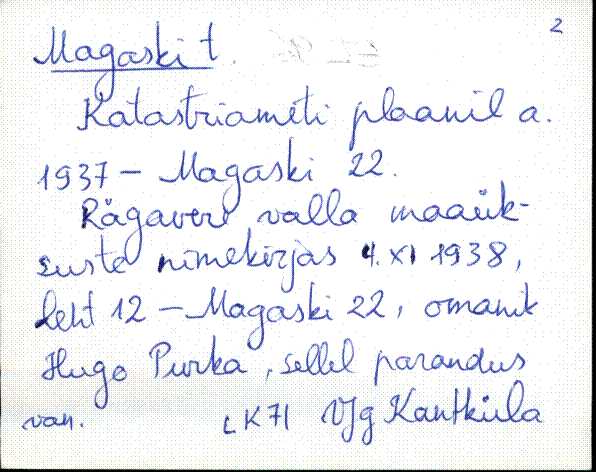 2
Magaski t.
Katastriameti plaanil a.
1937 – Magaski 22.
Rägavere valla maaük-
suste nimekirjas 4. XI 1938,
leht 12 – Magaski 22, omanik
Hugo Purka, sellel parandus
van. LK71 VJg Kantküla